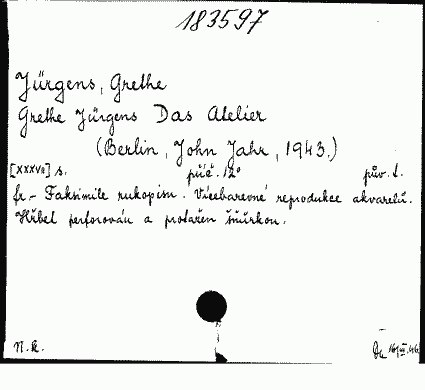 183597
Jürgens, Grethe
Grethe Jürgens Das Atelier
(Berlin, John Jahr, 1943.)
[XXXVII] s. příč. 12° pův. t.
fr. - Faksimile rukopisu. Vícebarevné reprodukce akvarelů.
Hřbet perforován a protažen šňůrkou.
N.k. 16/III.46